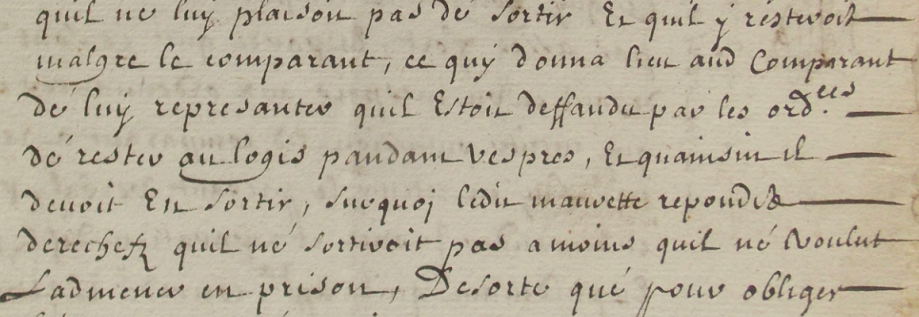 quil ne luy plaisoit pas de sortir Et quil y resteroit
malgre le comparant, ce quy donna lieu aud Comparant
de luy represanter quil Estoit deffandu par les ord.ces
de rester au logis pandant vespres, Et quainsin il
devoit En sortir, surquoj ledit mauvette repondit
derechef quil ne sortiroit pas amoins quil ne voulut
Ladmener en prison, Desorte que pour obliger